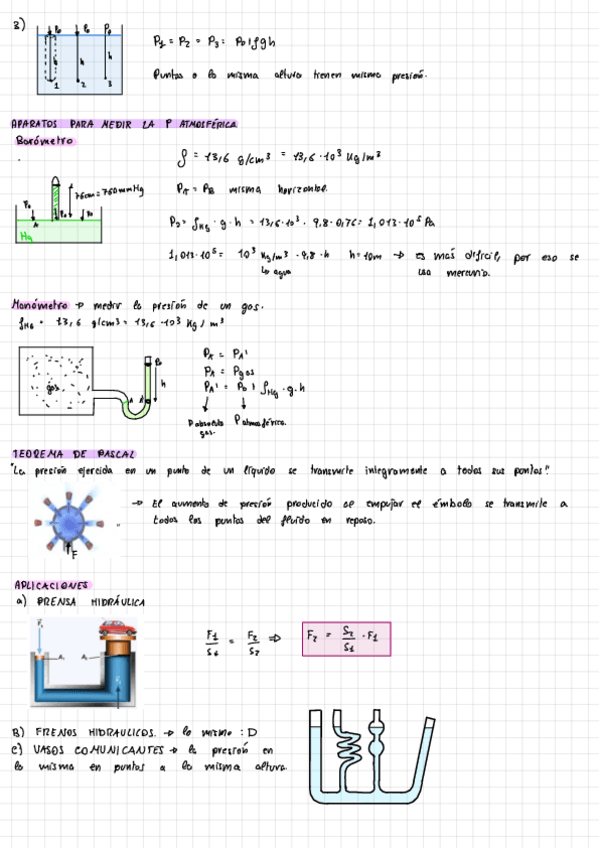 3)
P0 P0 P0
h h h
1 2 3
P1 = P2 = P3 = P0+ρgh
Puntos a la misma altura tienen misma presión.
APARATOS PARA MEDIR LA P ATMOSFÉRICA
Barómetro
ρ = 13,6 g/cm³ = 13,6·10³ Kg/m³
76cm = 760mmHg
PA = PB misma horizontal.
P0 A P0 P0
Hg
P0 = ρHg · g · h = 13,6·10³ · 9,8·0,76 = 1,013·10⁵ Pa
1,013·10⁵ = 10³ Kg/m³ · 9,8·h h = 10m → es más difícil, por eso se
la agua
usa mercurio.
Manómetro → medir la presión de un gas.
ρHg = 13,6 g/cm³ = 13,6·10³ Kg/m³
gas
P0
h
A A'
PA = PA'
PA = Pgas
PA' = P0 + ρHg · g · h
Pabsoluta Patmosférica.
gas.
TEOREMA DE PASCAL
"La presión ejercida en un punto de un líquido se transmite íntegramente a todos sus puntos".
→ El aumento de presión producido al empujar el émbolo se transmite a
todos los puntos del fluido en reposo.
F
APLICACIONES
a) PRENSA HIDRÁULICA
F1/S1 = F2/S2 ⇒ F2 = S2/S1 · F1
B) FRENOS HIDRAULICOS. → lo mismo :D
C) VASOS COMUNICANTES → la presión en
la misma en puntos a la misma altura.